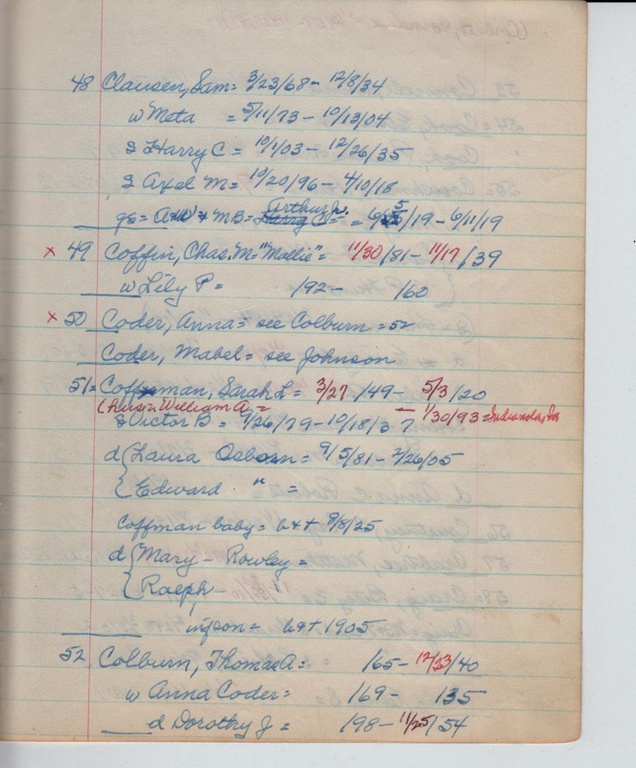 48 Clausen, Sam = 3/23/68 - 12/8/34
w Meta = 5/11/73 - 10/13/04
s Harry C = 10/1/03 - 12/26/35
s Axel M = 10/20/96 - 4/10/18
gs = & MB = Arthur Jr. = 6/5/19 - 6/11/19
x 49 Coffin, Chas. M = "Mollie" = 11/30/81 - 11/17/39
w Lily P = /92 - /60
x 50 Coder, Anna = see Colburn = 52
Coder, Mabel = see Johnson
51 = Coffman, Sarah L = 3/27/49 - 5/3/20
(hus = William A = - 1/30/93 = Indianola, Ia
s Victor B = 9/26/79 - 10/18/37
d { Laura Osborn = 9/5/81 - 2/26/05
{ Edward " =
Coffman baby = b+t 9/8/25
d { Mary - Rowley =
{ Raeph - "
inf son = b+t 1905
52 Colburn, Thomas A = /65 - 12/23/40
w Anna Coder = /69 - /35
d Dorothy J = /98 - 11/25/54